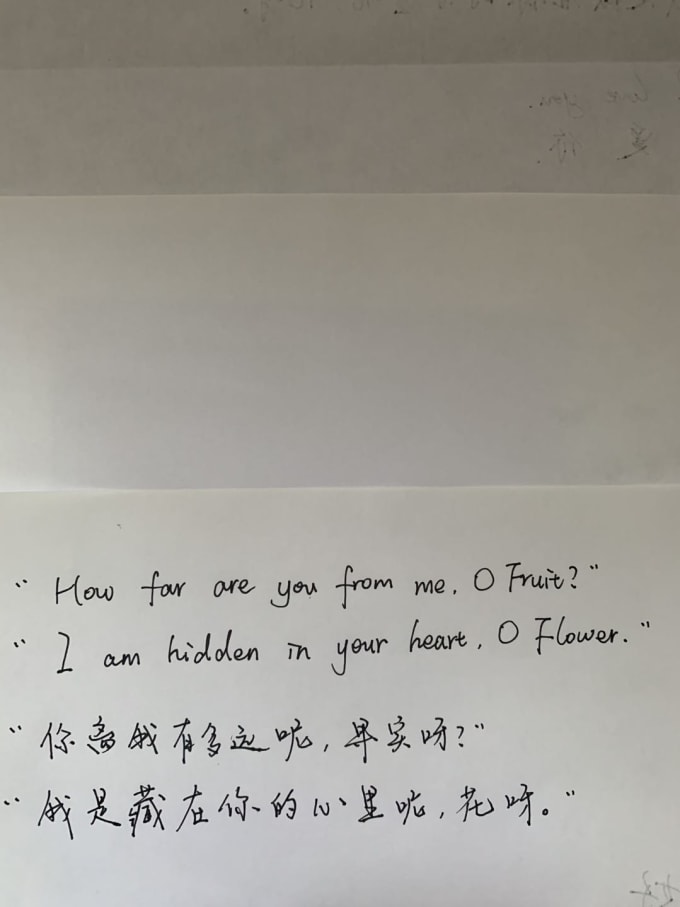 love you.
是 你.
“ How far are you from me, O Fruit?”
“ I am hidden in your heart, O Flower.”
“你离我有多远呢，果实呀？”
“我是藏在你的心里呢，花呀。”